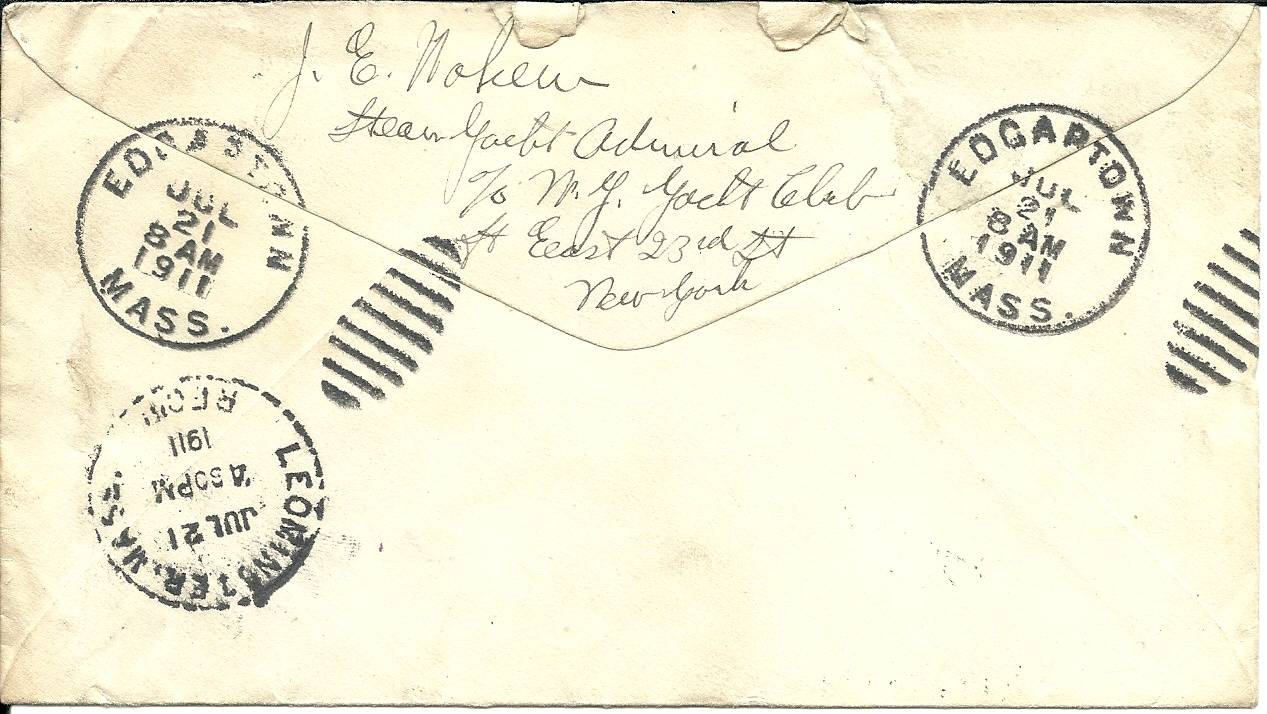 J. E.
Steam Yacht Admiral
℅ N. Y. Yacht Club
ft East 23rd St
New York
EDGARTOWN
JUL
21
8 AM
1911
MASS.
EDGARTOWN
JUL
21
8 AM
1911
MASS.
LEOMINSTER, MASS.
JUL 21
30PM
1911
REC'D